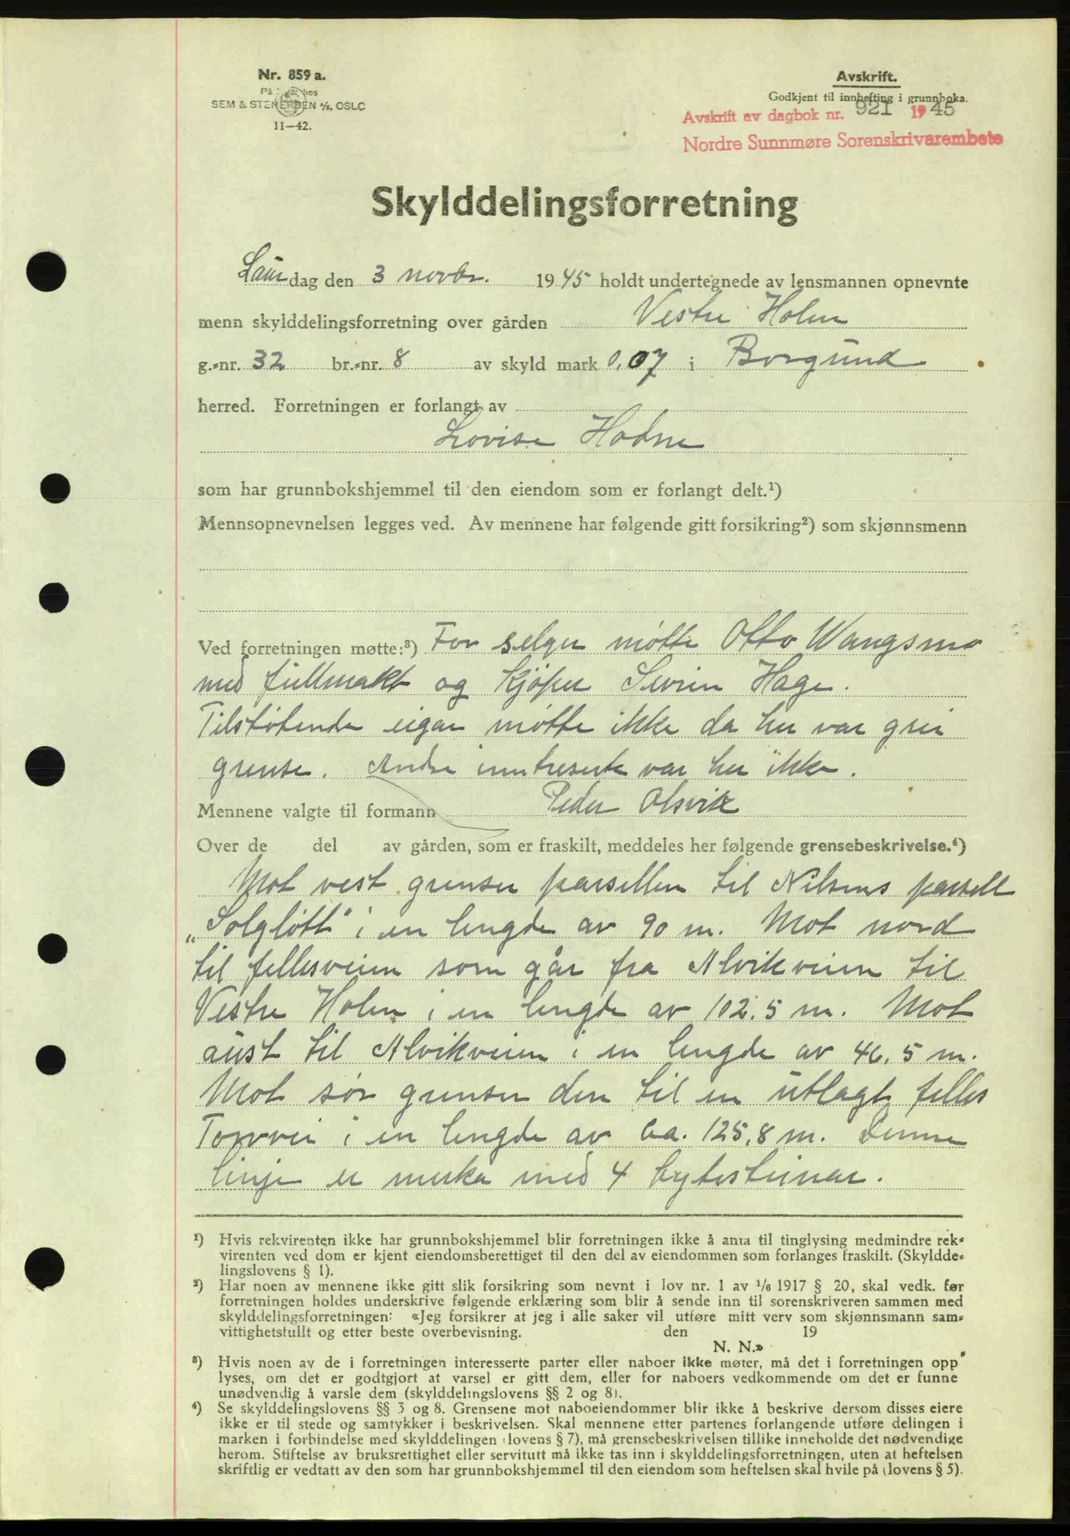 Nr. 859 a.
På lager hos
SEM & STENERSEN A/S, OSLO
11—42.
Avskrift.
Godkjent til innhefting i grunnboka.
Avskrift av dagbok nr. 921 1945
Nordre Sunnmøre Sorenskrivarembete
Skylddelingsforretning
Laurdag den 3 novbr. 1945 holdt undertegnede av lensmannen opnevnte
menn skylddelingsforretning over gården Vestre Holen
g.-nr. 32 br.-nr. 8 av skyld mark 0,07 i Borgund
herred. Forretningen er forlangt av
Lovise Hodne
som har grunnbokshjemmel til den eiendom som er forlangt delt.¹)
Mennsopnevnelsen legges ved. Av mennene har følgende gitt forsikring²) som skjønnsmenn
Ved forretningen møtte:³) For selger møtte Otto Wangsmo
med fullmakt og Kjøper Severin Hage.
Tilstøtende eigar møtte ikke da her var grei
grense. Andre inntreserte var her ikke.
Mennene valgte til formann Peder Olsvik
Over de del av gården, som er fraskilt, meddeles her følgende grensebeskrivelse.⁴)
Mot vest grenser parsellen til Nilsens parsell
„Solgløtt" i en lengde av 90 m. Mot nord
til fellesveien som går fra Alvikveien til
Vestre Holen i en lengde av 102,5 m. Mot
aust til Alvikveien i en lengde av 46,5 m.
Mot sør grenser den til en utlagt felles
Torvvei i en lengde av ca. 125,8 m. Denne
linje er merka med 4 bytesteinar.
¹) Hvis rekvirenten ikke har grunnbokshjemmel blir forretningen ikke å anta til tinglysing medmindre rek-
virenten ved dom er kjent eiendomsberettiget til den del av eiendommen som forlanges fraskilt. (Skyldde-
lingslovens § 1).
²) Har noen av mennene ikke gitt slik forsikring som nevnt i lov nr. 1 av 1/6 1917 § 20, skal vedk. før
forretningen holdes underskrive følgende erklæring som blir å sende inn til sorenskriveren sammen med
skylddelingsforretningen: «Jeg forsikrer at jeg i alle saker vil utføre mitt verv som skjønnsmann sam-
vittighetsfullt og etter beste overbevisning. den 19
N. N.»
³) Hvis noen av de i forretningen interesserte parter eller naboer ikke møter, må det i forretningen opp
lyses, om det er godtgjort at varsel er gitt dem, eller for naboers vedkommende om det er funne
unødvendig å varsle dem (skylddelingslovens §§ 2 og 8).
⁴) Se skylddelingslovens §§ 3 og 8. Grensene mot naboeiendommer blir ikke å beskrive dersom disses eiere
ikke er til stede og samtykker i beskrivelsen. Skal mennene etter partenes forlangende utføre delingen i
marken i forbindelse med skylddelingen (lovens § 7), må grensebeskrivelsen tillike inneholde det nødvendige
herom. Stiftelse av bruksrettighet eller servitutt må ikke tas inn i skylddelingsforretningen, uten at heftelsen
skriftlig er vedtatt av den som har grunnbokshjemmel til den eiendom som heftelsen skal hvile på (lovens § 5).